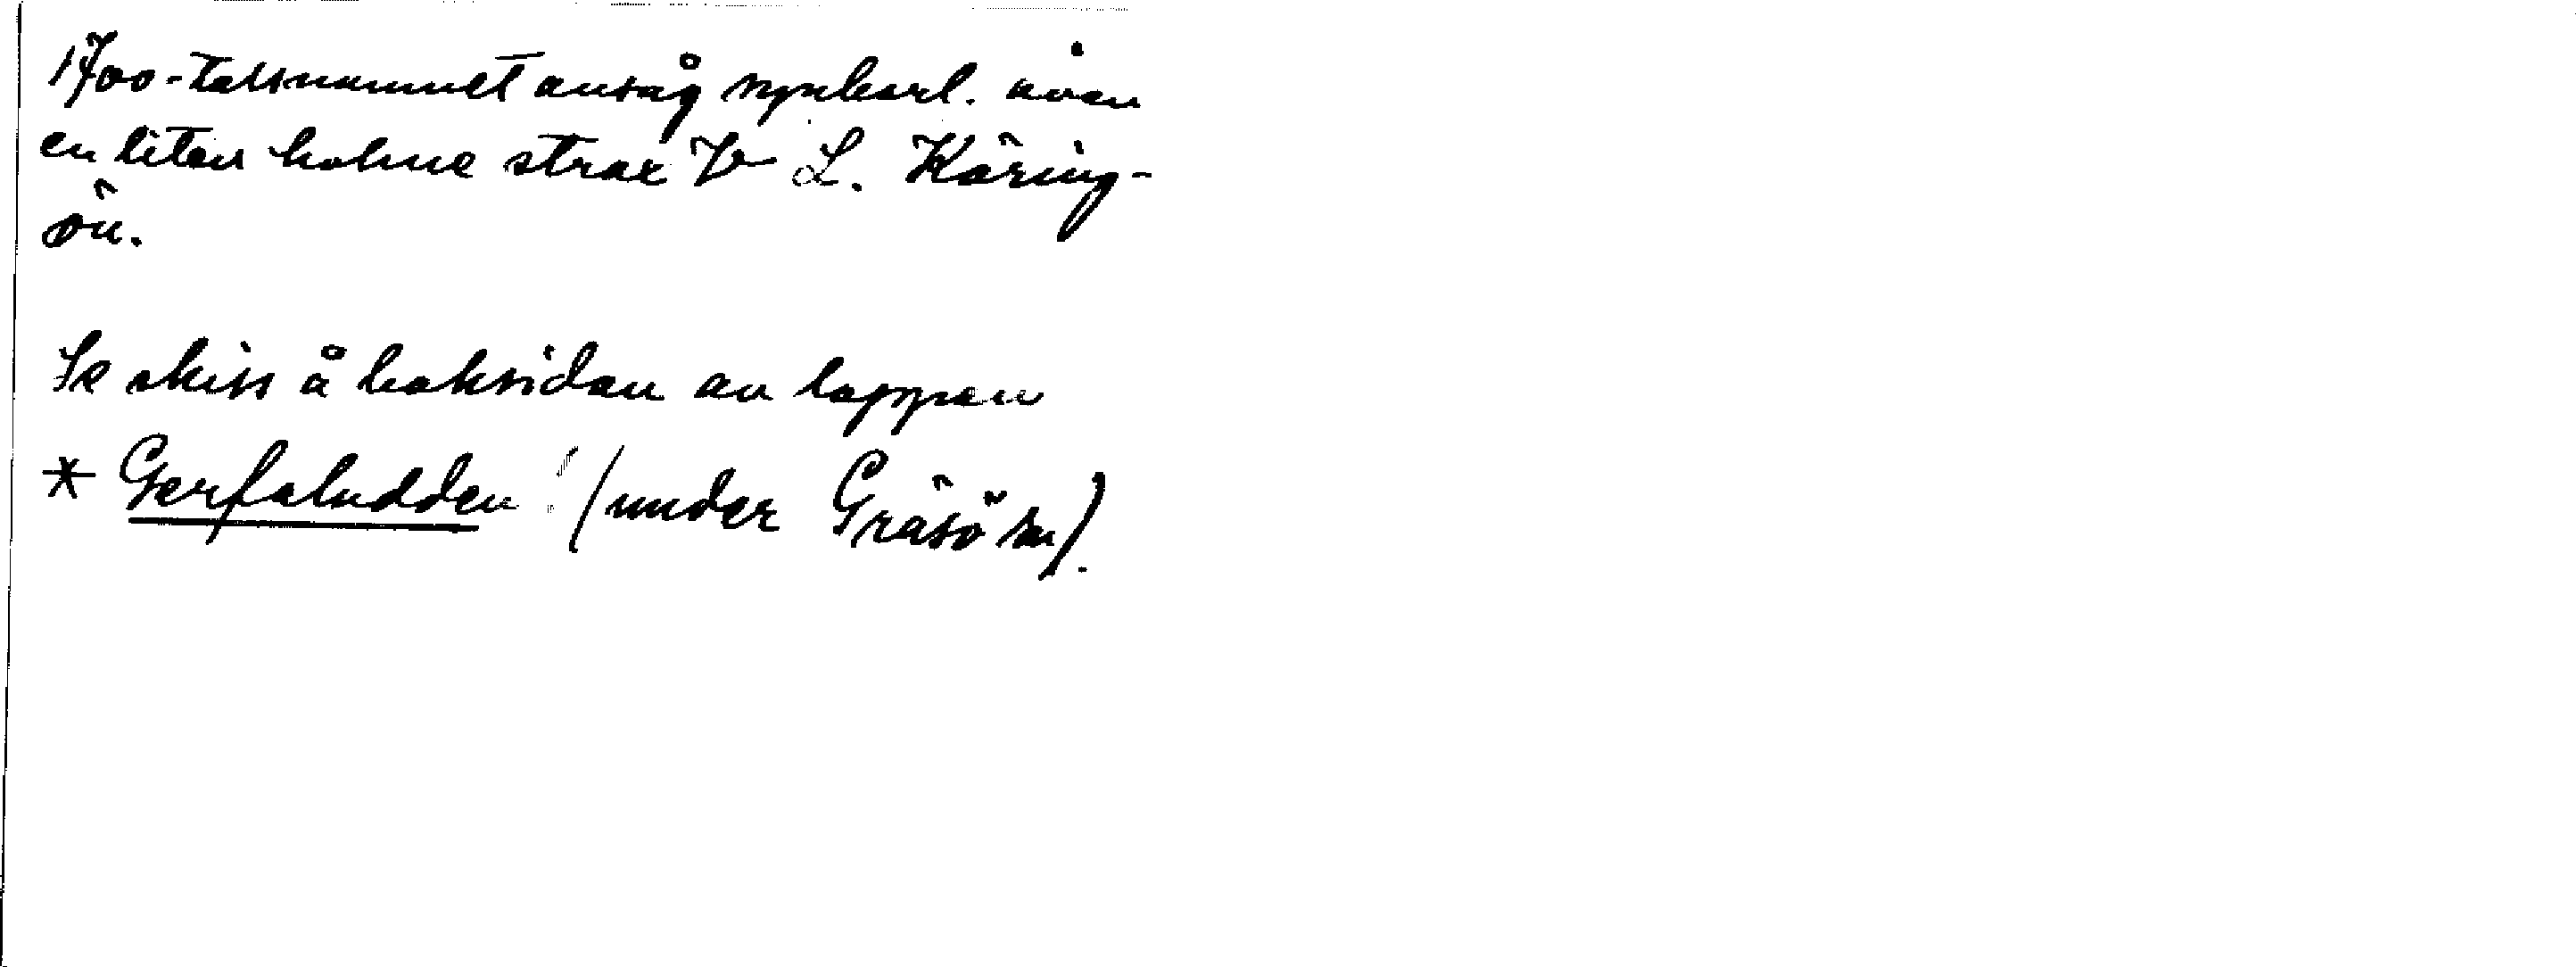 1700-talsnamnet ansåg uppenbarl. även
en liten holme strax V L. Käring-
ön.
Se skiss å baksidan av lappen
* Gerfaludden! (under Gräsö sn).